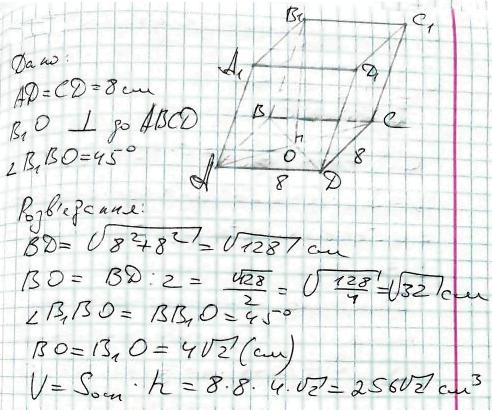 Дано:
AD=CD=8 см
B₁O ⊥ до ABCD
∠B₁BO=45°
B₁
C₁
A₁
D₁
B
C
h
O
8
A
8
D
Розв'язання:
BD= √8²+8² = √128 см
BO = BD:2 = √128/2 = √128/4 = √32 см
∠B₁BO = BB₁O = 45°
BO = B₁O = 4√2 (см)
V = Sосн · h = 8·8·4·√2 = 256√2 см³